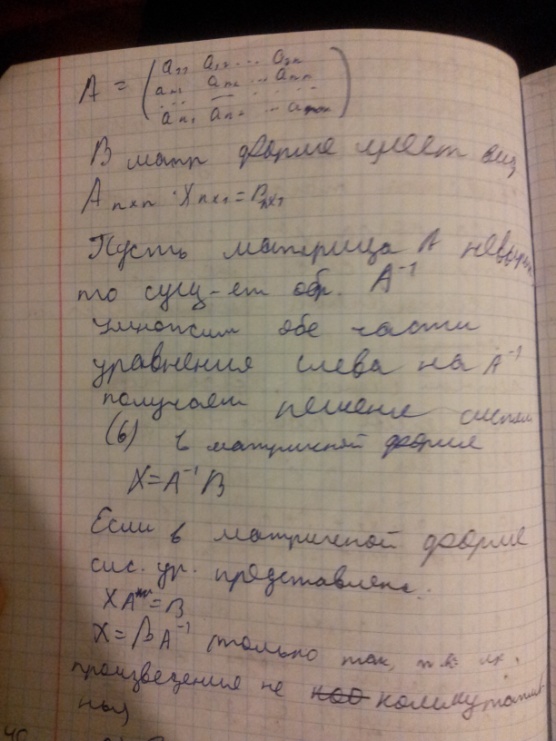 A = ( a₁₁ a₁₂ ... a₂ₙ
aₙ₁ aₙ₂ ... aₙₙ
... ... ...
aₙ₁ aₙ₂ ... )
В матр форме имеет вид
A n×n · X n×1 = B n×1
Пусть матрица A невыр
то сущ-ет обр. A⁻¹
умножим обе части
уравнения слева на A⁻¹
получаем решение систем
(6) в матричной форме
X = A⁻¹ B
Если в матричной форме
сис. ур. представлена:
X A = B
X = B A⁻¹ (только так, т.к.
произведения не коммутатив
ны)